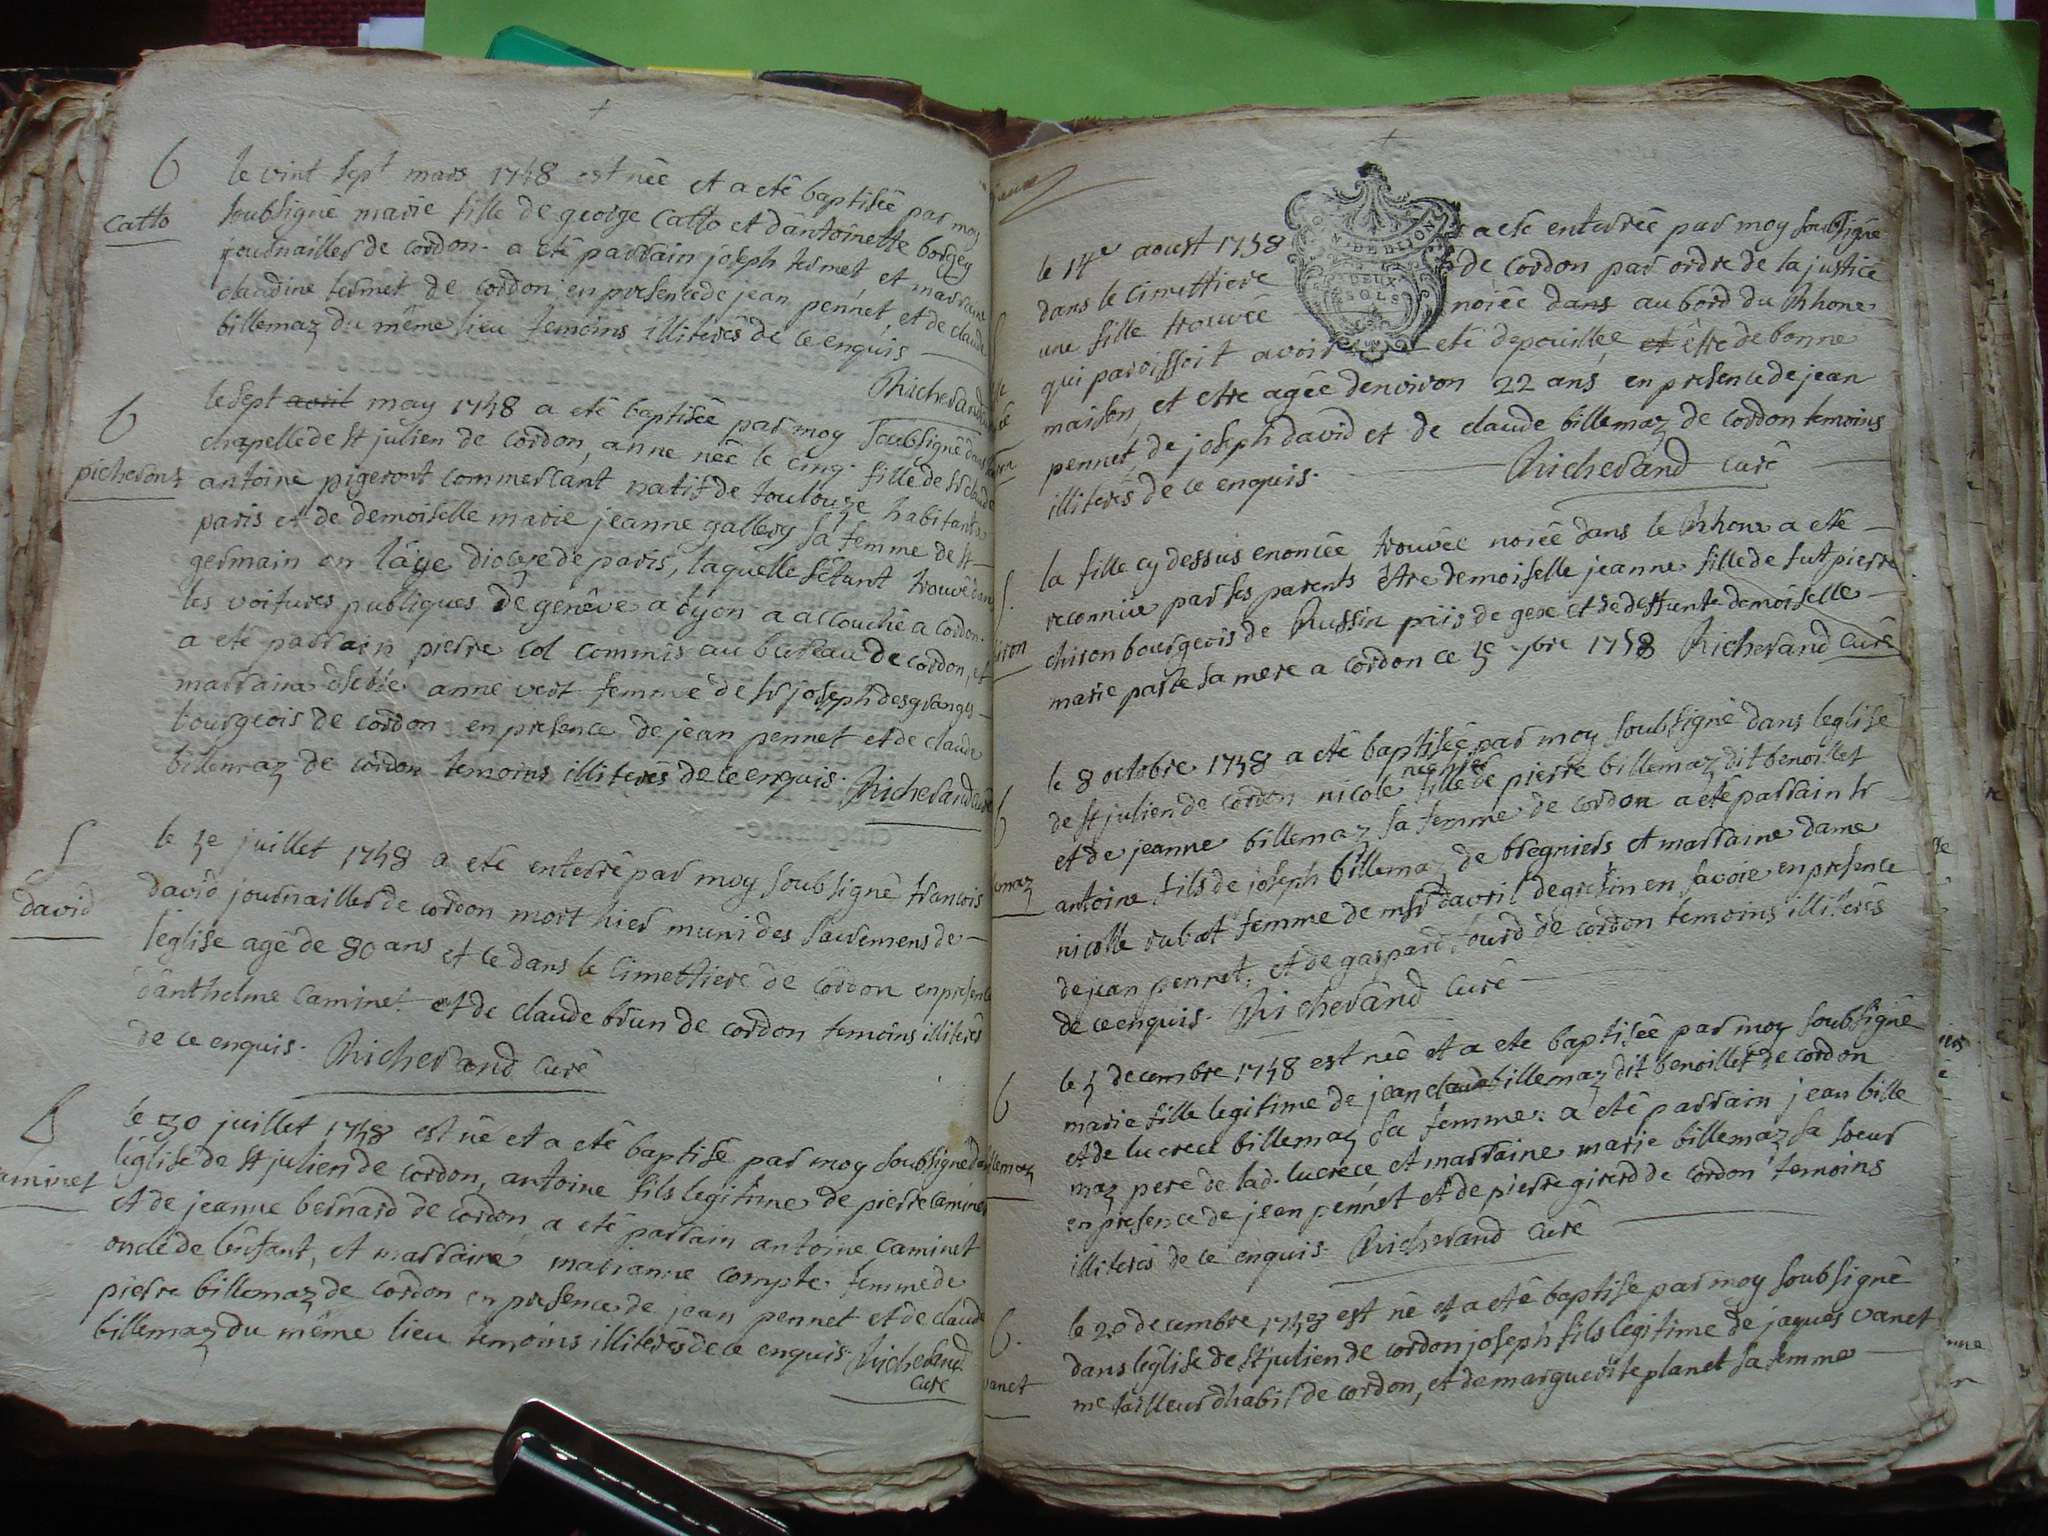 b
le vint sept mars 1758 est née et a eté baptisée par moy
catto
soubsigné marie fille de george catto et d'antoinette borgey
journaillers de cordon. a eté parrain joseph termet, et marraine
claudine termet de cordon en presence de jean pennet et de claude
billemaz du même lieu temoins illiterés de ce enquis
Richerand
b
le sept avril may 1758 a eté baptisée par moy soubsigné dans la
picheront
chapelle de st julien de cordon, anne née le cinq. fille de sr claude
antoine pigeront commersant natif de toulouze habitant a
paris et de demoiselle marie jeanne gallery sa femme de st
germain en laye diocese de paris, laquelle s'étant trouvé dans
les voitures publiques de genêve a lyon a accouché a cordon.
a eté parrain pierre col commis au bureau de cordon, et
marraine anne vert femme de sr joseph desgranges
bourgeois de cordon en presence de jean pennet et de claude
billemaz de cordon temoins illiterés de ce enquis. Richerand curé
S
le 5e juillet 1758 a eté enterré par moy soubsigné francois
david
david journaillier de cordon mort hier muni des sacremens de
l'eglise agé de 80 ans et ce dans le cimettiere de cordon en presence
d'anthelme caminet et de claude brun de cordon temoins illiterés
de ce enquis. Richerand curé
B
le 30 juillet 1758 est né et a eté baptisé par moy soubsigné dans
aminet
l'église de st julien de cordon, antoine fils legitime de pierre caminet
et de jeanne bernard de cordon, a eté parrain antoine caminet
oncle de l'enfant, et marraine marianne compte femme de
pierre billemaz de cordon en presence de jean pennet et de claude
billemaz du même lieu temoins illiterés de ce enquis. Richerand
curé
GN. DE DIJON
DEUX
SOLS
le 14e aoust 1758 a eté enterrée par moy soubsigné
dans le cimettiere de cordon par ordre de la justice
une fille trouvée noiée dans au bord du Rhone
qui paroissoit avoir eté depouillée et être de bonne
maison, et etre agée denviron 22 ans en presence de jean
pennet de joseph david et de claude billemaz de cordon temoins
illiterés de ce enquis. Richerand curé
la fille cy dessus enoncée trouvée noiée dans le Rhone a eté
S.
reconnüe par ses parents être demoiselle jeanne fille de fut pierre
iron
chiron bourgeois de Russin païs de gex et de deffunte demoiselle
marie parte sa mere a cordon ce 5e 7bre 1758 Richerand curé
le 8 octobre 1758 a eté baptisée par moy soubsigné dans leglise
b
de st julien de cordon nicole fille de pierre billemaz dit benoillet
et de jeanne billemaz sa femme de cordon a eté parrain sr
emaz
antoine fils de joseph billemaz de bregniers et marraine dame
nicolle rubat femme de msr davril de gresin en savoie en presence
de jean pennet, et de gaspard tourd de cordon temoins illiterés
de ce enquis. Richerand curé
le 5 decembre 1758 est née et a ete baptisée par moy soubsigné
b
marie fille legitime de jean claude billemaz dit benoillet de cordon
et de lucrece billemaz sa femme. a eté parrain jean bille
llemaz
maz pere de lad. lucrece et marraine marie billemaz sa soeur
en presence de jean pennet et de pierre girerd de cordon temoins
illiterés de ce enquis. Richerand curé
b.
le 20 decembre 1758 est né et a eté baptisé par moy soubsigné
dans l'église de st julien de cordon joseph fils legitime de jaques vanet
vanet
me tailleur dhabit de cordon, et de marguerite planet sa femme